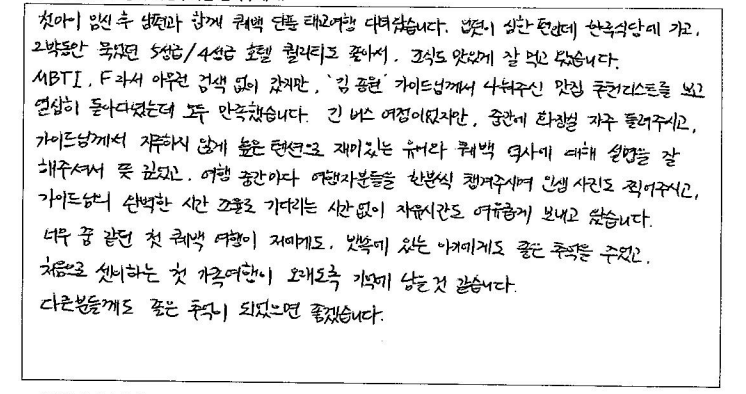 첫아이 임신 후 남편과 함께 퀘백 단풍 태교여행 다녀왔습니다. 입덧이 심한 편인데 한국식당에 가고,
2박동안 묵었던 5성급/4성급 호텔 퀄리티도 좋아서, 조식도 맛있게 잘 먹고 왔습니다.
MBTI, F라서 아무런 검색 없이 갔지만, '김 종원' 가이드님께서 나눠주신 맛집 추천리스트를 보고
열심히 돌아다녔는데 모두 만족했습니다. 긴 버스 여정이었지만, 중간에 화장실 자주 들려주시고,
가이드님께서 지루하지 않게 높은 텐션으로 재미있는 유머와 퀘백 역사에 대해 설명을 잘
해주셔서 뜻 깊었고, 여행 중간마다 여행자분들을 한분씩 챙겨주시며 인생 사진도 찍어주시고,
가이드님의 완벽한 시간 조율로 기다리는 시간없이 자유시간도 여유롭게 보내고 왔습니다.
너무 꿈 같던 첫 퀘백 여행이 저에게도, 뱃속에 있는 아기에게도 좋은 추억을 주었고,
처음으로 셋이하는 첫 가족여행이 오래도록 기억에 남을 것 같습니다.
다른분들께도 좋은 추억이 되었으면 좋겠습니다.